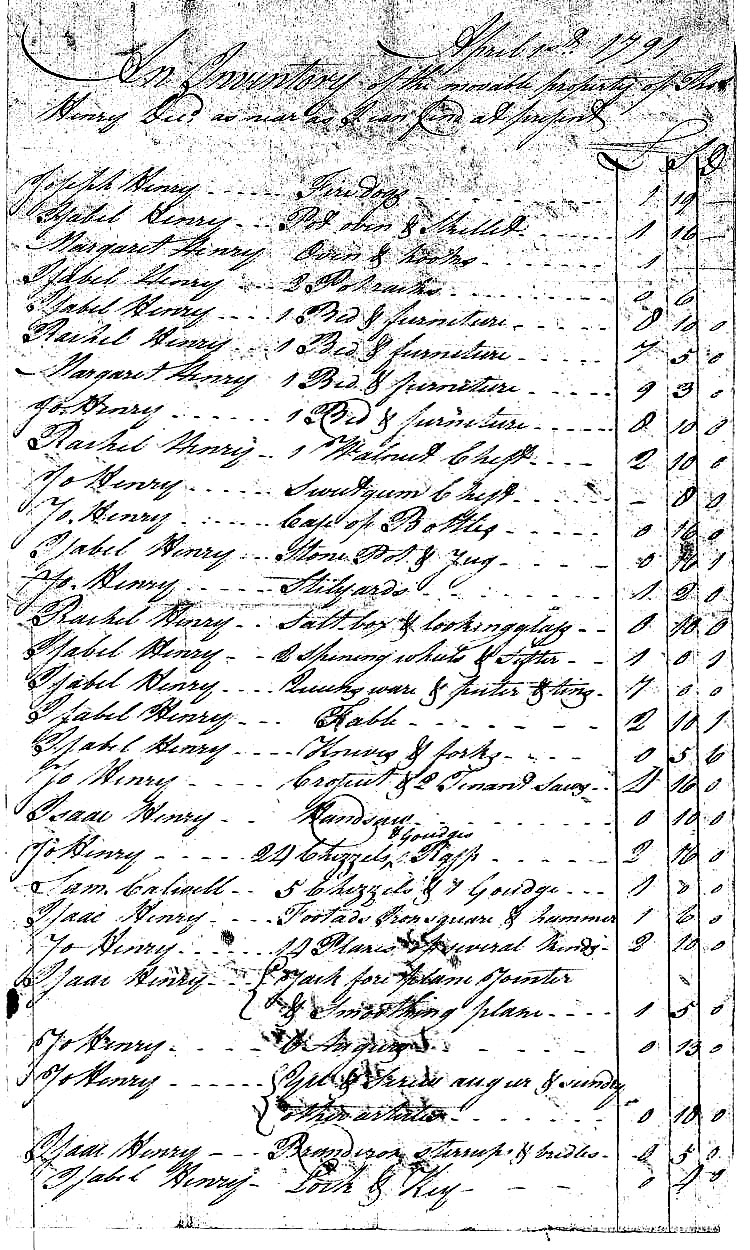 April 10th 1791
An Inventory of the movable property of Thos
Henry Decd as near as I can find at present
£ S D
Joseph Henry Firedogs 1 19 —
Ysabel Henry Pot oven & Skillet 1 16 —
Margaret Henry Oven & hooks 1
Ysabel Henry 2 Potracks 0 6
Ysabel Henry 1 Bed & furneture 8 10 0
Rachel Henry 1 Bed & furneture 7 5 0
Margaret Henry 1 Bed & furneture 9 3 0
Jo. Henry 1 Bed & furneture 8 10 0
Rachel Henry 1 Walnut Chest 2 10 0
Jo Henry Sweetgum Chest – 8 0
Jo. Henry Case of Bottles 0 16 0
Ysabel Henry Stone Pot & Jug 0 1
Jo. Henry Stilyards 1 2 0
Rachel Henry Saltbox & lookingglass 0 10 0
Ysabel Henry 2 Spining wheels & Sifter 1 0 1
Ysabel Henry Queens ware & puter & tins 7 0 0
Ysabel Henry Table 2 10 1
Ysabel Henry Knives & forks 0 5 6
Jo Henry Croscut & 2 Tenant Saws 4 16 0
Isaac Henry Handsaw 0 10 0
Jo Henry 24 Chizzels & Goudges Rasp 2 16 0
Sam. Calwell 5 Chizzels & 1 Goudge 1 0 0
Isaac Henry Footads Iron square & hammer 1 6 0
Jo Henry 14 Planes of several kinds 2 10 0
Isaac Henry Jack fore plane Jointer
& Smoothing plane 1 5 0
Jo Henry 6 Augurs 0 13 0
Jo Henry & Screw augur & sundry
other articles 0 18 0
Isaac Henry Brandiron stirrups & bridles 0 5 0
Ysabel Henry Lock & Key 0 4 0